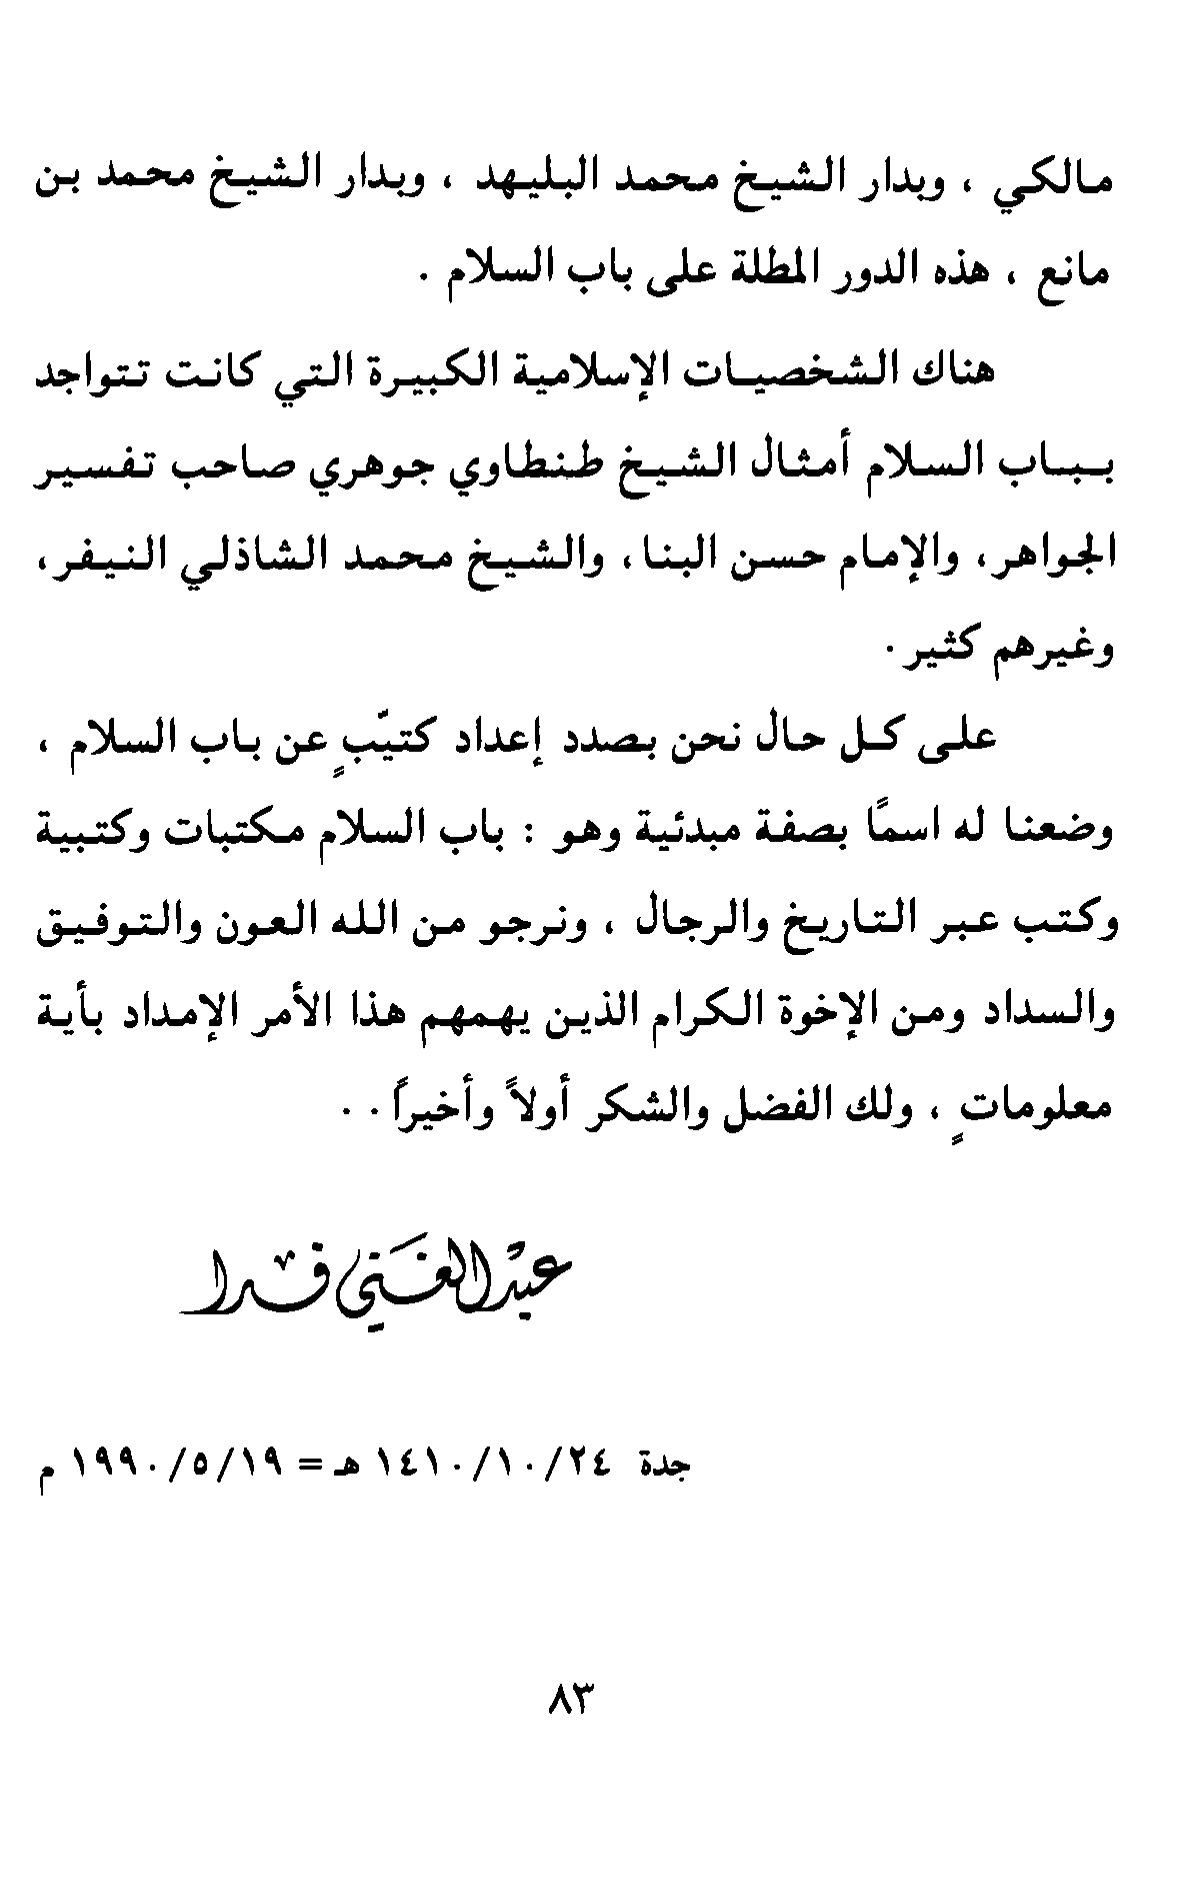 مالكي ، وبدار الشيخ محمد البليهد ، وبدار الشيخ محمد بن
مانع ، هذه الدور المطلة على باب السلام .
هناك الشخصيات الإسلامية الكبيرة التي كانت تتواجد
بباب السلام أمثال الشيخ طنطاوي جوهري صاحب تفسير
الجواهر، والإمام حسن البنا، والشيخ محمد الشاذلي النيفر،
وغيرهم كثير.
على كل حال نحن بصدد إعداد كتيّبٍ عن باب السلام ،
وضعنا له اسمًا بصفة مبدئية وهو : باب السلام مكتبات وكتبية
وكتب عبر التاريخ والرجال ، ونرجو من الله العون والتوفيق
والسداد ومن الإخوة الكرام الذين يهمهم هذا الأمر الإمداد بأية
معلوماتٍ ، ولك الفضل والشكر أولاً وأخيراً . .
عبد الغني فدا
جدة ١٤١٠/١٠/٢٤ هـ = ١٩٩٠/٥/١٩ م
٨٣